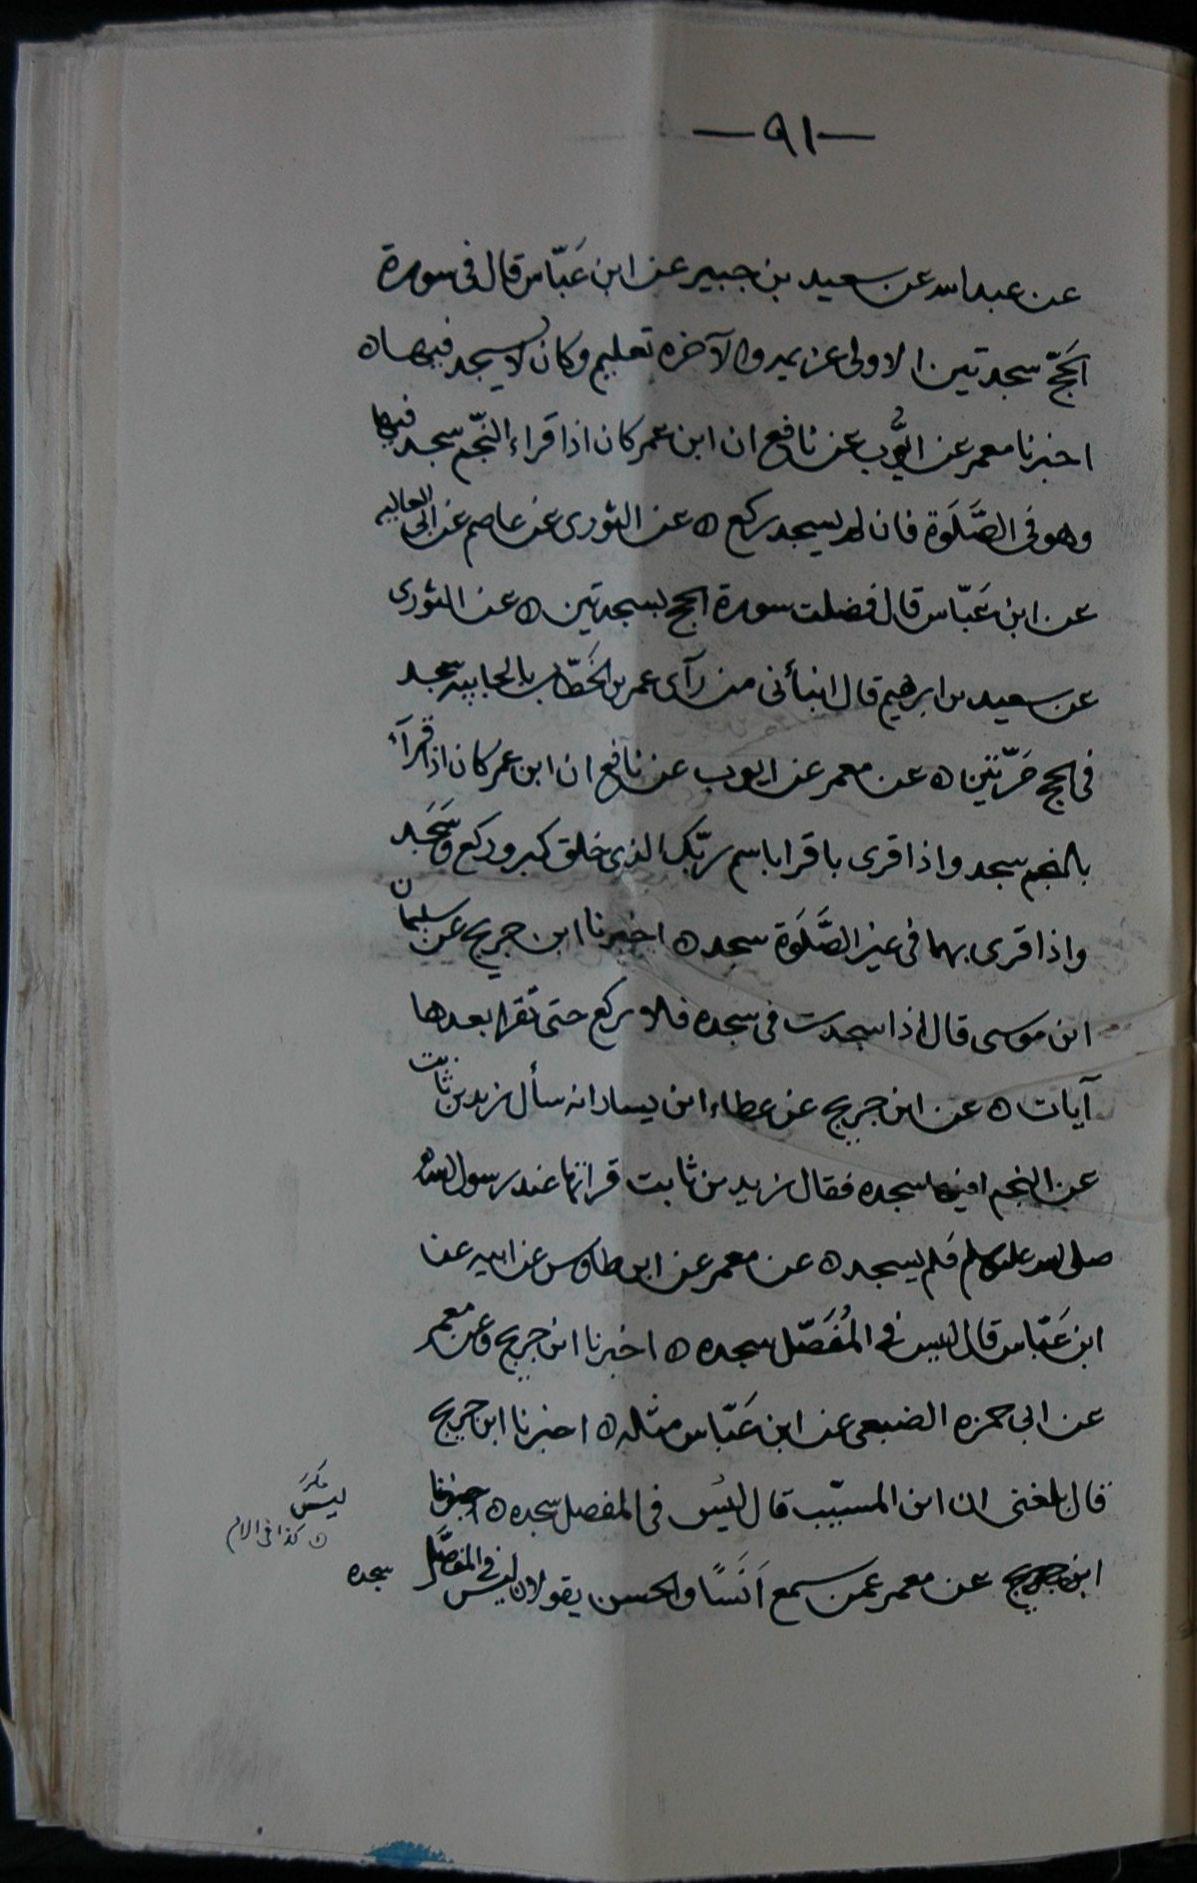 —٩١—
عن عبد الله عن سعيد بن جبير عن ابن عَبّاس قال فى سورة
الحَجّ سجدتين الاولى عزيمه والآخره تعليم وكان لا يسجد فيها ه
اخبرنا معمر عن ايُّوب عن نافع ان ابن عمر كان اذا قراء النّجم سجد فيها
وهو فى الصَّلَوة فان لم يسجد ركع ه عن الثورى عن عاصم عن ابى العاليه
عن ابن عَبّاس قال فضلت سورة الحج بسجدتين ه عن الثورى
عن سعيد بن ابرهيم قال انبأنى من رآى عمر بن الخَطّاب بالجابيه سجد
فى الحج مَرّتين ه عن معمر عن ايوب عن نافع ان ابن عمر كان اذا قرآء
بالنجم سجد واذا قرى باقرا باسم ربّك الذى خلق كبر وركع وَسَجَد
واذا قرى بهما فى غير الصَّلَوة سجد ه اخبرنا ابن جريج عن سليمان
ابن موسى قال اذا سجدت فى سجده فلا تركع حتى تقرا بعدها
آيات ه عن ابن جريج عن عطاء ابن يسار انه سأل زيد بن ثابت
عن النجم افيها سجده فقال زيد بن ثابت قراتها عند رسول الله
صلى الله عليه وسلم فلم يسجد ه عن معمر عن ابن طاوس عن ابيه عن
ابن عَبّاس قال ليس فى المُفَصّل سجده ه اخبرنا ابن جريج وعن معمر
عن ابى حمزه الضبعى عن ابن عَبّاس مثله ه اخبرنا ابن جريج
قال بلغنى ان ابن المسيّب قال ليس فى المفصل سجده ه اخبرنا
ابن جريج عن معمر عمن سمع اَنَسًا والحسن يقولان ليس فى المفصَّل سجده
ليس
ه كذا فى الام